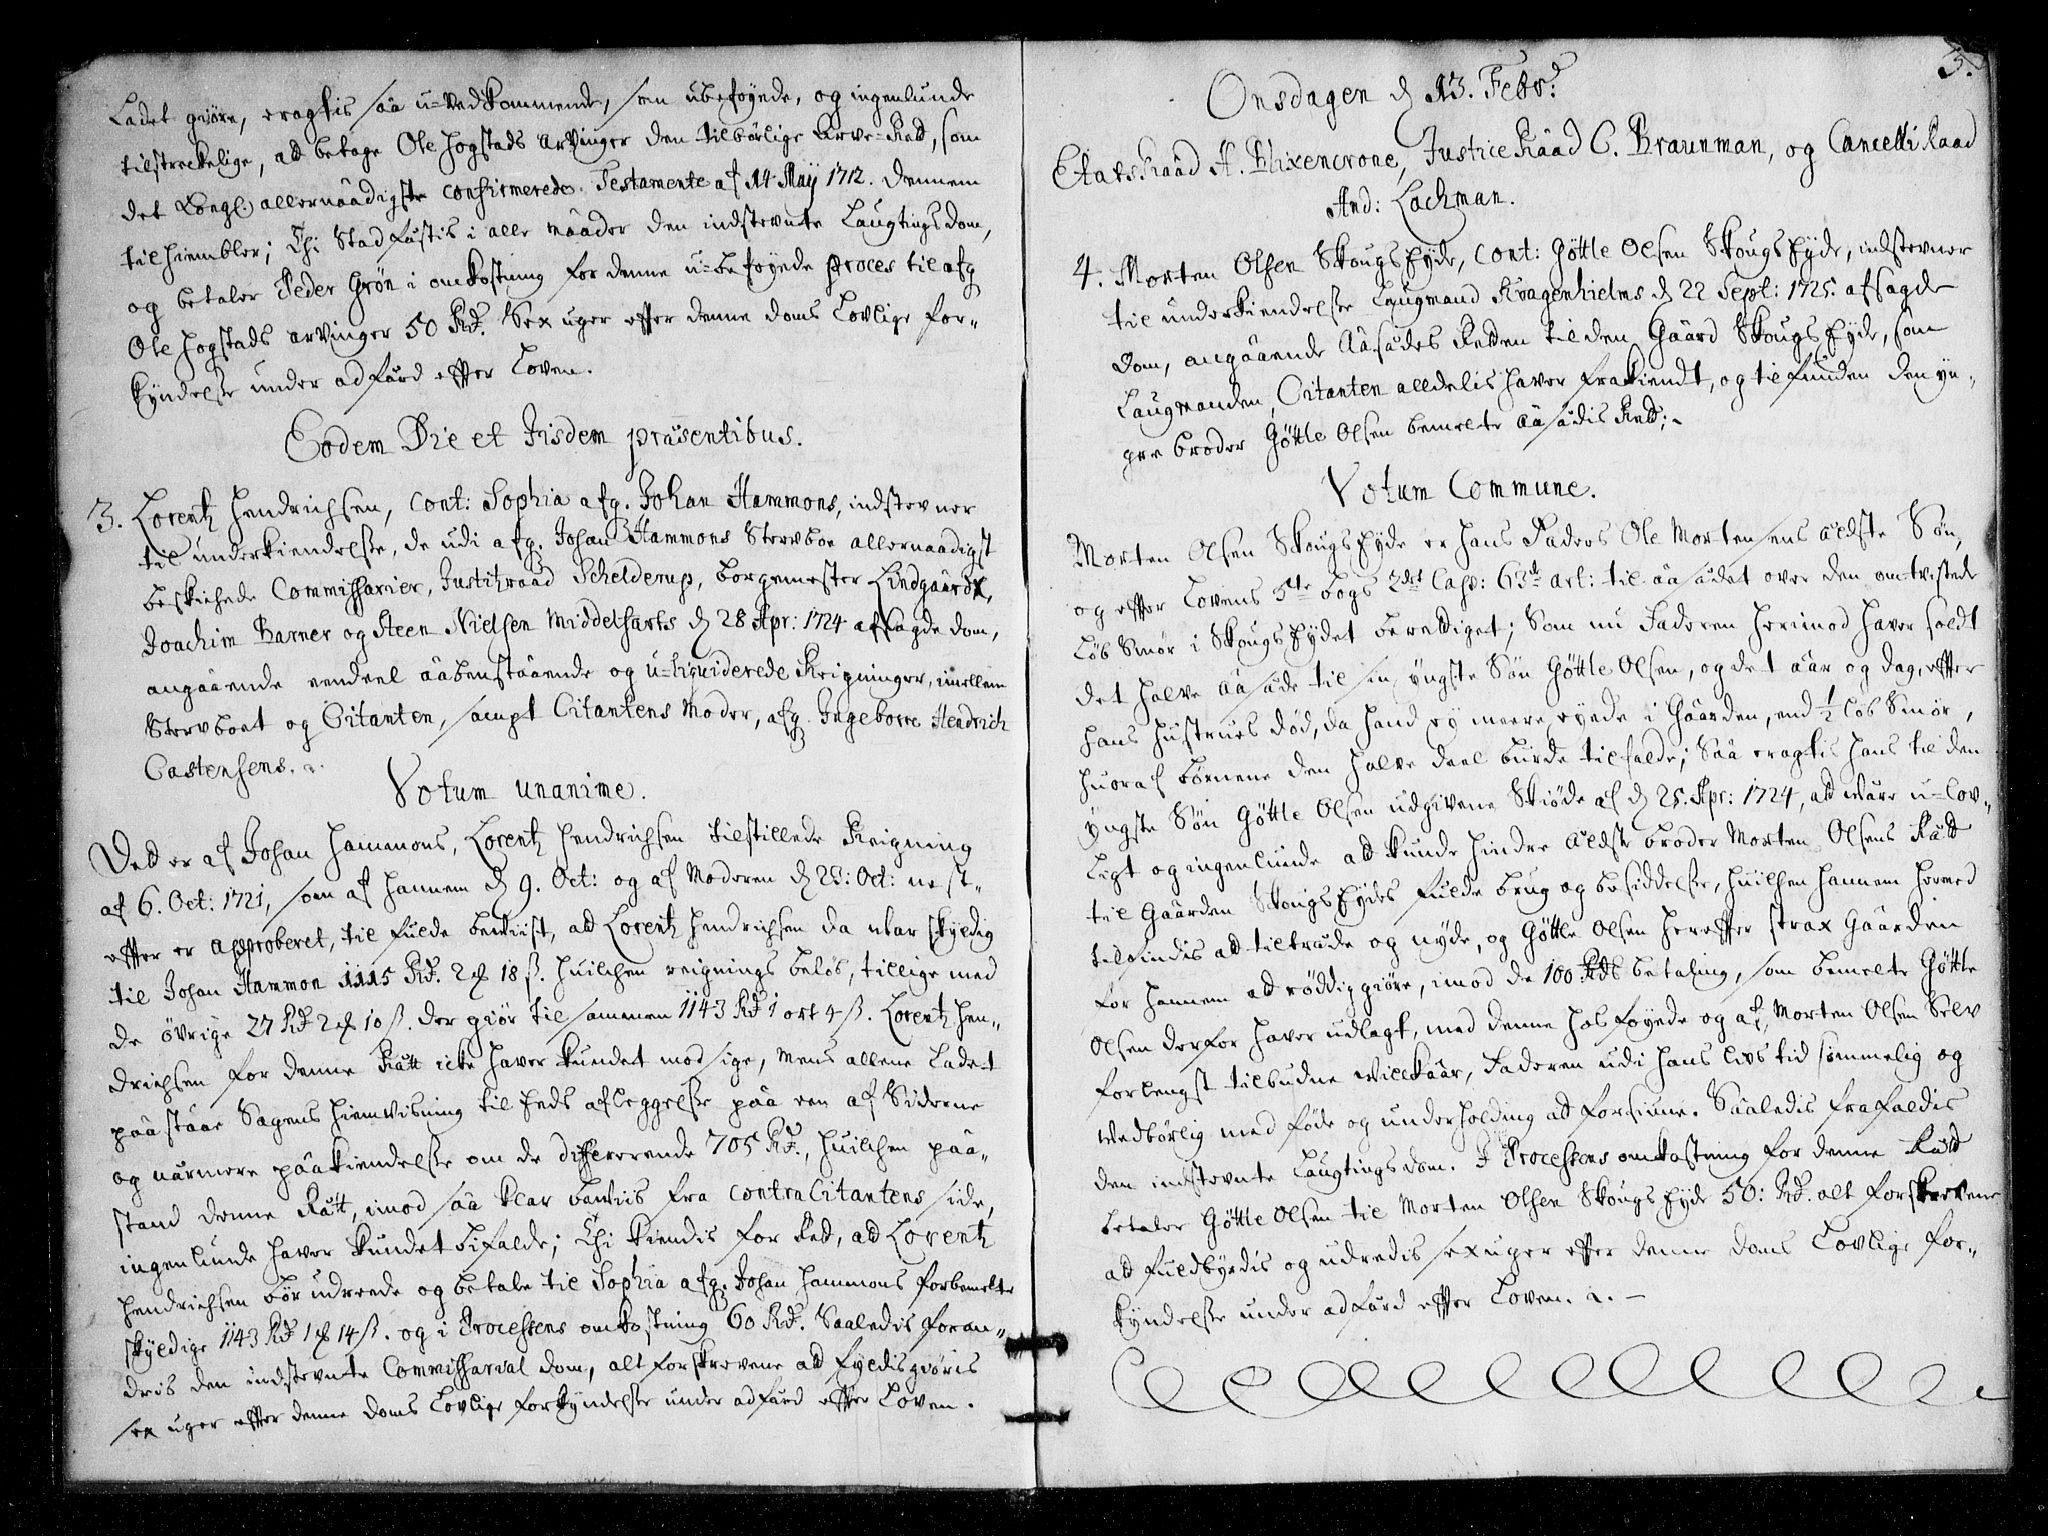 Ladet giøre, eragtis saa u-vedkommende, som ubeføyede, og ingenlunde
tilstreckelige, at betage Ole Hogstads arvinger den tilbörlige Arve-Rett, som
det Kongl: allernaadigste confirmerede Testamente af 14 Maij 1712. dennem
tilhiembler; Thi Stadfæstis i alle maader den indstevnte Laugtings dom,
og betaler Peder Grön i omkostning for denne u-beføyede proces til afg
Ole Hogstads arvinger 50 Rd. Sex uger effter denne doms Lovlige for-
kyndelse under adfærd effter Loven.
Eodem Die et Iisdem præsentibus.
3. Lorentz Hendrichsen, cont: Sophia afg. Johan Hammons, indstevner
til underkiendelse, de udi afg. Johan Hammons Stervboe allernaadigst
beskichede Commissarier, Justitzraad Schelderup, borgemester Lindgaard,
Joachim Barner og Steen Nielsen Middelfarts d 28 Apr: 1724 afsagde dom,
angaaende eendeel aabenstaaende og u-liqviderede Reigninger, imellem
Stervboet og Citanten, sampt Citantens Moder, afg. Ingeborre Hendrich
Castensens.
Votum unanime.
Det er af Johan Hammons, Lorentz Hendrichsen tilstillede Reigning
af 6. Oct: 1721, som af hannem d 9. Oct: og af Moderen d 23: Oct: nest-
effter er approberet, til fulde beviist, at Lorentz Hendrichsen da var skyldig
til Johan Hammon 1115 Rd. 2 # 18 ß. Huilchen reignings beløb, tillige med
de övrige 27 Rd 2 # 10 ß. der giör tilsammen 1143 Rd 1 ort 4 ß. Lorentz Hen-
drichsen for denne Rätt icke haver kundet modsige, mens allene Ladet
paastaae Sagens hiemviisning til Eeds aflæggelse paa een af Siderne
og nærmere paakiendelse om de differerende 705 Rd., huilchen paa-
stand denne Rätt, imod saa klar beviis fra contraCitantens side,
ingenlunde haver kundet bifalde; Thi kiendis for Ret, at Lorentz
Hendrichsen bör udreede og betale til Sophia afg. Johan Hammons forbemelte
skyldige 1143 Rd 1 # 14 ß. og i Processens omkostning 60 Rd. Saaledis foran-
dris den indstevnte Commissarial dom, alt forskrevene at fyldisgiöris
sex uger effter denne doms Lovlige forkyndelse under adfærd effter Loven.
3.
Onsdagen d 13. Febr:
Etats Raad A. Blixencrone, Justice Raad C. Braunman, og Cancelli Raad
And: Lachman.
4. Morten Olsen Skougs Eyde, cont: Göttle Olsen Skougs Eyde, indstevner
til underkiendelse Laugmand Kragenhielms d 22 Sept: 1725. afsagde
dom, angaaende Aasædes Retten til den Gaard Skougs Eyde, som
Laugmanden, Citanten alldelis haver frakiendt, og tilfunden den yn-
gre broder Göttle Olsen bemelte aasædis Rett;
Votum Commune.
Morten Olsen Skougs Eyde er hans Faders Ole Mortensens ældste Sön,
og effter Lovens 5te bogs 2det Cap: 63de art: til aasædet over den omtvistede
Löb Smör i Skougs Eydet berettiget; Som nu Faderen herimod haver soldt
det halve aasæde til sin yngste Sön Göttle Olsen, og det aar og dag, effter
hans Hustrues död, da hand ey meere eyede i Gaarden, end ½ Löb Smör,
huoraf börnene den halve deel burde tilfalde; Saa eragtis hans til den
yngste Sön Göttle Olsen udgivene Skiöde af d 25. Apr: 1724, at være u-lov-
ligt og ingenlunde at kunde hindre ældste broder Morten Olsens Rätt
til Gaarden Skougs Eydes fulde brug og besiddelse, huilchen hannem hermed
tilfindis at tiltræde og nyde, og Göttle Olsen hereffter strax Gaarden
for hannem at röddiggiöre, imod de 100 Rds betaling, som bemelte Göttle
Olsen derfor haver udlagt, med denne hosføyede og af Morten Olsen Selv
forlengst tilbudne Villkaar, Faderen udi hans livs tid sømmelig og
vedbörlig med föde og underholding at forsiune. Saaledis frafaldis
den indstevnte Laugtings dom. I Processens omkostning for denne Rätt
betaler Göttle Olsen til Morten Olsen Skougs Eyde 50: Rd. alt forskrevene
at fuldbyrdis og udredis sex uger effter denne doms Lovlige for-
kyndelse under adfærd effter Loven.